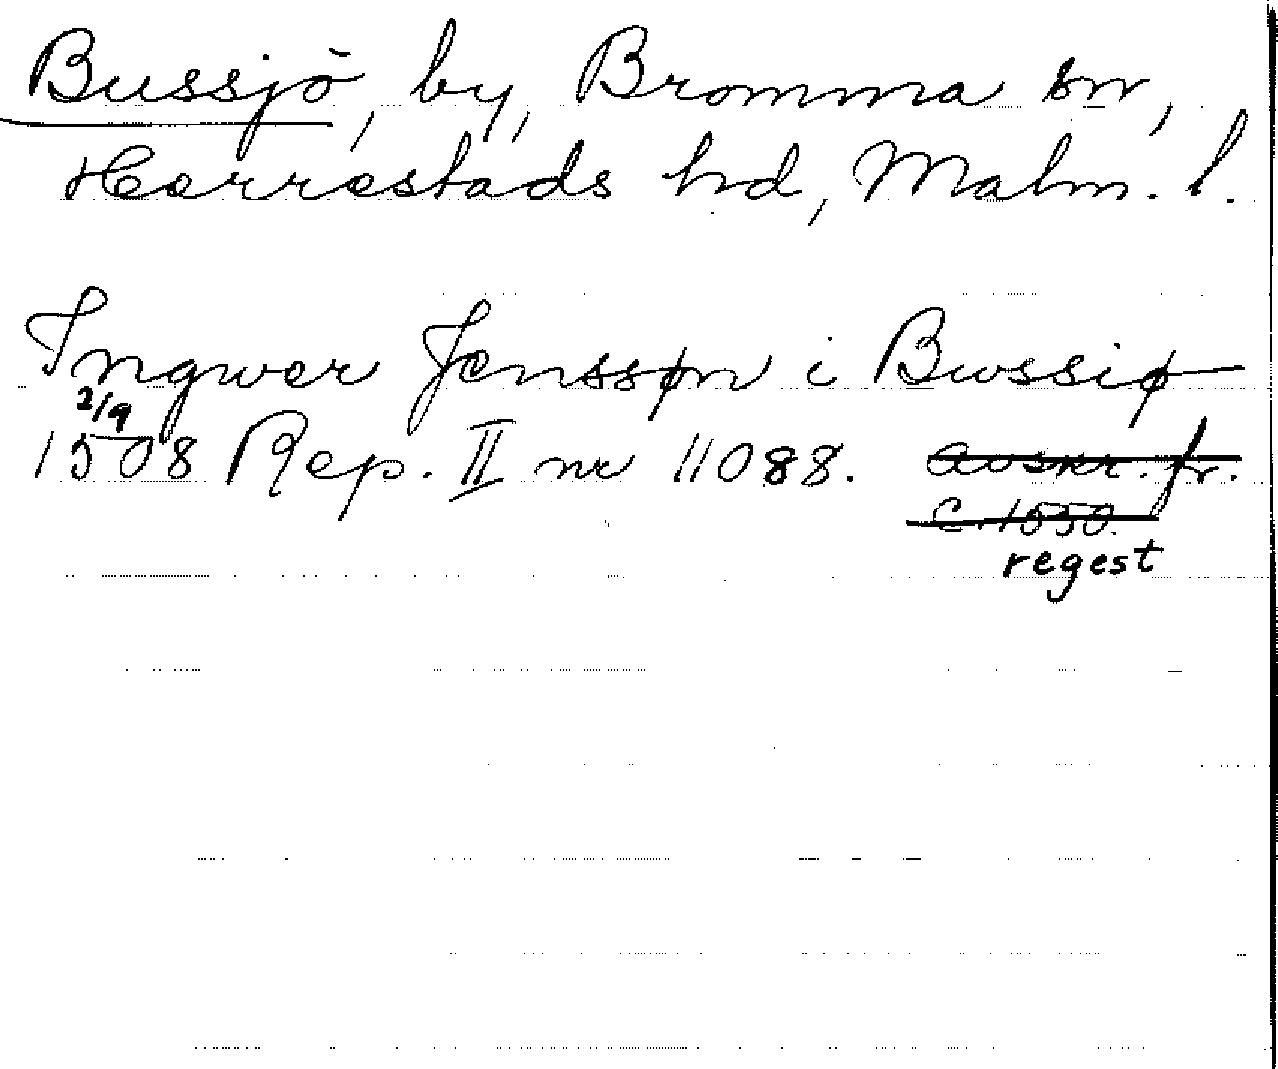 Bussjö, by, Bromma sn,
Herrestads hd, Malm. l.
Ingwer Jenssøn i Bwssiø
2/9
1508 Rep. II nr 11088. avskr. fr.
c. 1550.
regest